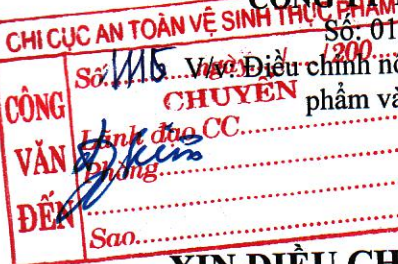 CHI CỤC AN TOÀN VỆ SINH THỰC PHẨM
Số: 01
Số 1115 ngày / /200
V/v: Điều chỉnh
CÔNG VĂN ĐẾN
CHUYỂN
phẩm và
Lãnh đạo CC
Phòng
Sao
XIN ĐIỀU CH